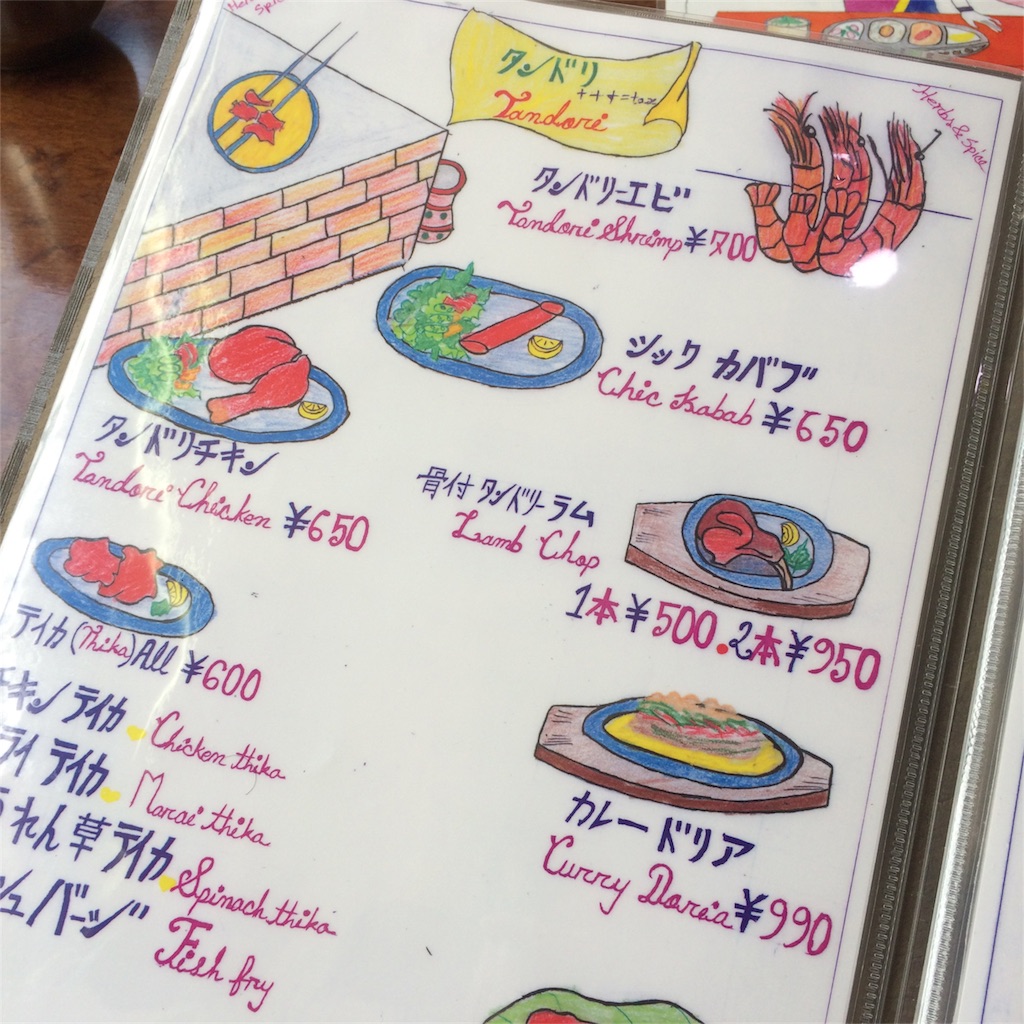 Herbs & Spice
タンドリ
+++=tax
Tandori
Herbs & Spice
タンドリーエビ
Tandori Shrimp ¥700
シック カバブ
Chic Kabab ¥650
タンドリーチキン
Tandori Chicken ¥650
骨付 タンドリー ラム
Lamb Chop
1本¥500.2本¥950
テイカ (Thika) All ¥600
キン テイカ Chicken thika
ライ テイカ Marai thika
れん草テイカ Spinach thika
シュバージ Fish fry
カレー ドリア
Curry Doria ¥990